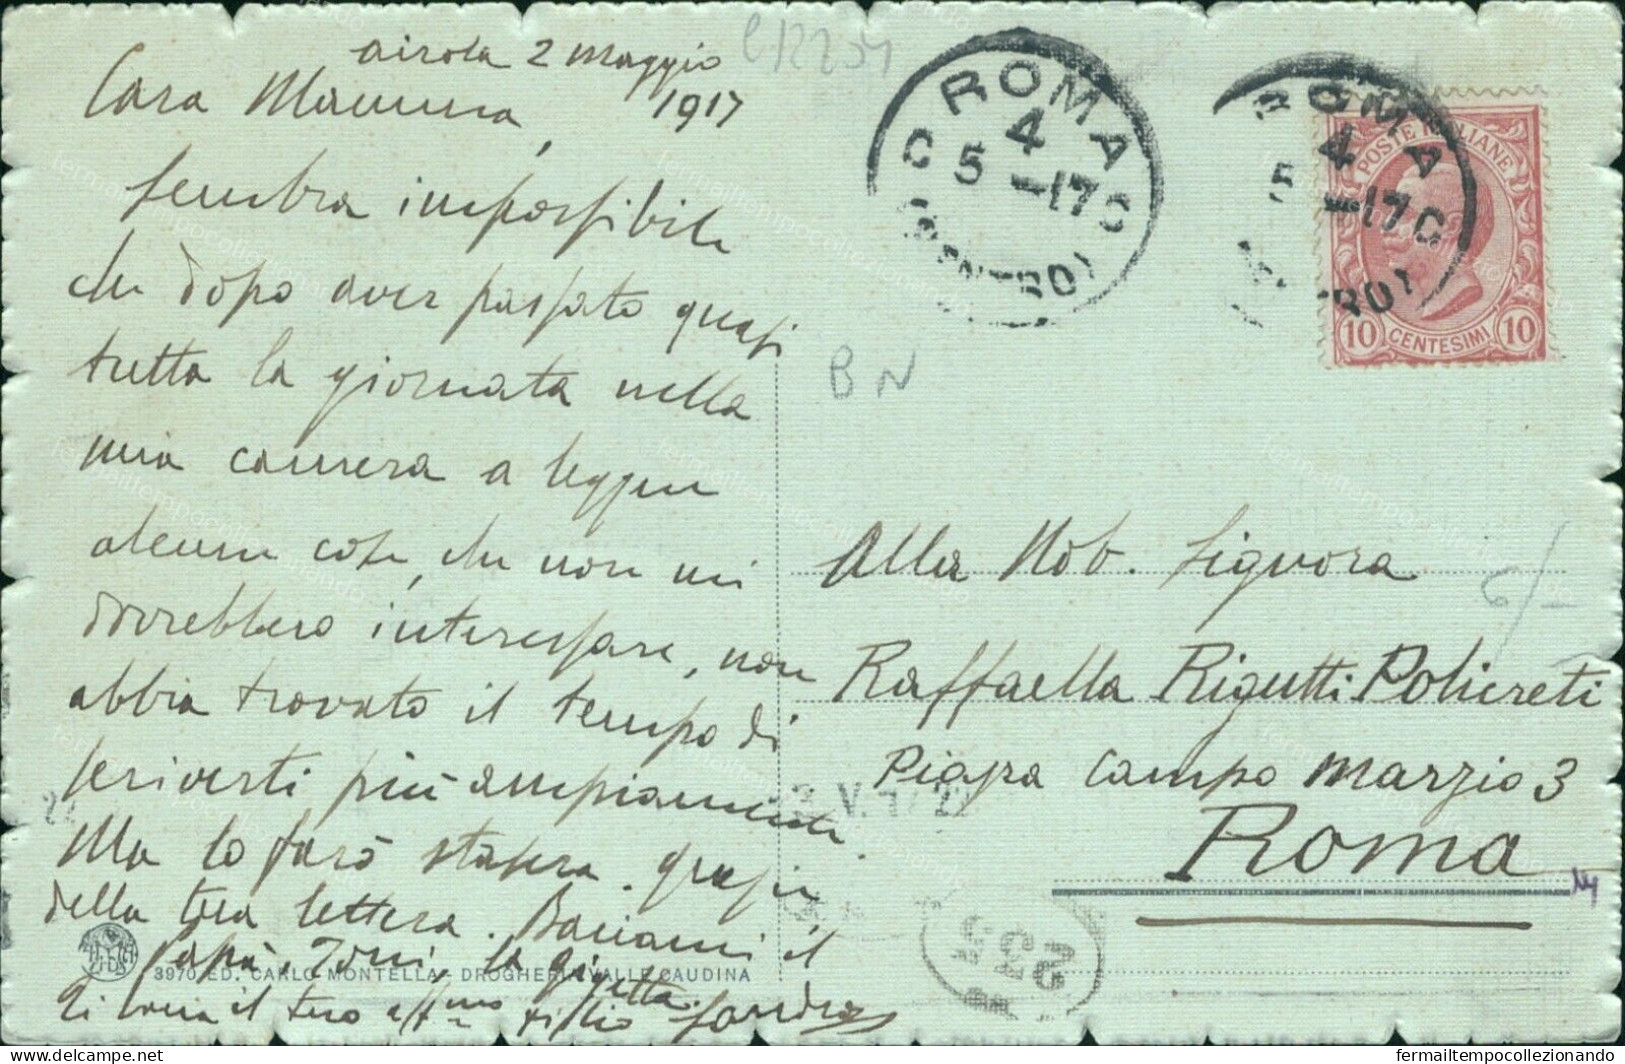 Airola 2 Maggio
1917
Cara Mamma,
sembra impossibile
che dopo aver passato quasi
tutta la giornata nella
mia camera a leggere
alcune cose, che non mi
dovrebbero interessare, non
abbia trovato il tempo di
scriverti più ampiamente.
Ma lo farò stasera. Grazie
della tua lettera. Baciami il
Papà, Toni, la Gigetta.
Ti bacia il tuo affmo figlio Sandro
3970 ED. CARLO MONTELLA - DROGHERIA VALLE CAUDINA
C12204
ROMA
4
5 -17
(CENTRO)
ROMA
4
5 -17
POSTE ITALIANE
10 CENTESIMI 10
BN
Alla Nob. Signora
Raffaella Rigutti Policreti
Piazza Campo Marzio 3
Roma
6/-
255
fermailtempocollezionando
delcampe.net